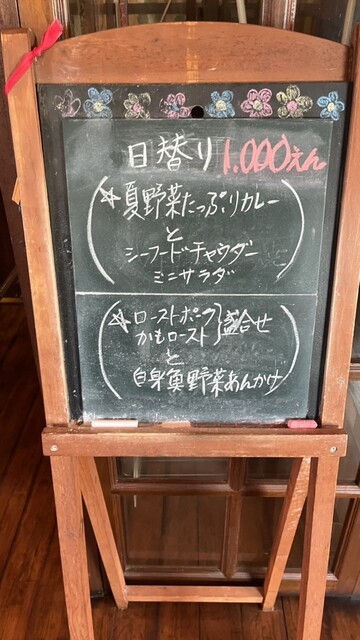 日替り 1.000えん
(☆夏野菜たっぷりカレー
と
シーフードチャウダー
ミニサラダ)
(☆ローストポーク
かもロースト}盛合せ
と
白身魚野菜あんかけ)